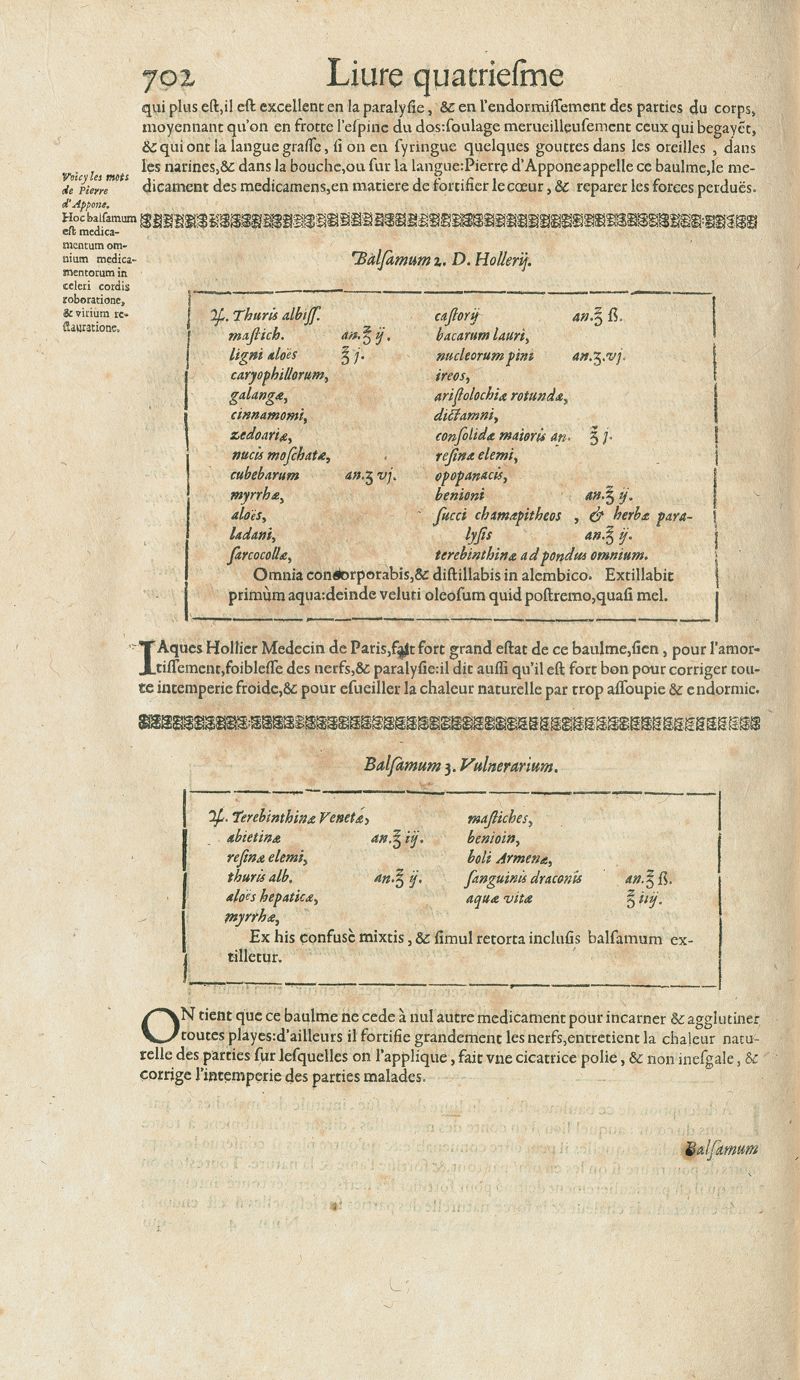 702
Liure quatriesme
qui plus est,il est excellent en la paralysie, & en l'endormissement des parties du corps,
moyennant qu'on en frotte l'espine du dos:soulage merueilleusement ceux qui begayẽt,
& qui ont la langue grasse, si on en syringue quelques gouttes dans les oreilles , dans
les narines,& dans la bouche,ou sur la langue:Pierre d'Appone appelle ce baulme,le me-
dicament des medicamens,en matiere de fortifier le cœur, & reparer les forces perduës.
Voicy les mots
de Pierre
d'Appone.
Hoc balsamum
est medica-
mentum om-
nium medica-
mentorum in
celeri cordis
roboratione,
& virium re-
stauratione.
Balsamum 2. D. Hollerij.
♃. Thuris albiss.
mastich. an.℥ ij.
ligni aloës ℥ j.
caryophillorum,
galangæ,
cinnamomi,
zedoariæ,
nucis moschatæ,
cubebarum an.ʒ vj.
myrrhæ,
aloës,
ladani,
sarcocollæ,
castorij an.℥ ß.
bacarum lauri,
nucleorum pini an.ʒ.vj.
ireos,
aristolochiæ rotundæ,
dictamni,
consolidæ maioris an. ℥ j.
resinæ elemi,
opopanacis,
benioni an.℥ ij.
succi chamæpitheos , & herbæ para-
lysis an.℥ ij.
terebinthinæ ad pondus omnium.
Omnia concorporabis,& distillabis in alembico. Extillabit
primùm aqua:deinde veluti oleosum quid postremo,quasi mel.
IAques Hollier Medecin de Paris,fait fort grand estat de ce baulme,sien , pour l'amor-
tissement,foiblesse des nerfs,& paralysie:il dit aussi qu'il est fort bon pour corriger tou-
te intemperie froide,& pour esueiller la chaleur naturelle par trop assoupie & endormie.
Balsamum 3. Vulnerarium.
♃. Terebinthinæ Venetæ,
abietinæ an.℥ iij.
resinæ elemi,
thuris alb. an.℥ ij.
aloës hepaticæ,
myrrhæ,
mastiches,
benioin,
boli Armenæ,
sanguinis draconis an.℥ ß.
aquæ vitæ ℥ iiij.
Ex his confusè mixtis, & simul retorta inclusis balsamum ex-
tilletur.
ON tient que ce baulme ne cede à nul autre medicament pour incarner & agglutiner
toutes playes:d'ailleurs il fortifie grandement les nerfs,entretient la chaleur natu-
relle des parties sur lesquelles on l'applique, fait vne cicatrice polie, & non inesgale, &
corrige l'intemperie des parties malades.
Balsamum